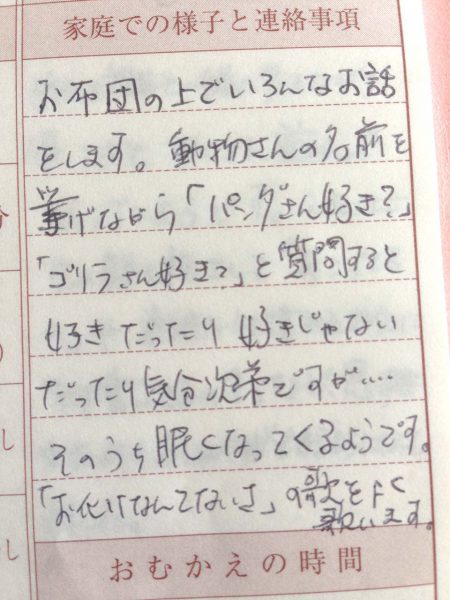 家庭での様子と連絡事項
お布団の上でいろんなお話
をします。動物さんの名前を
挙げながら「パンダさん好き?」
「ゴリラさん好き?」と質問すると
好きだったり好きじゃない
だったり気分次第ですが....
そのうち眠くなってくるようです。
「お化けなんてないさ」の歌をよく
歌います。
おむかえの時間